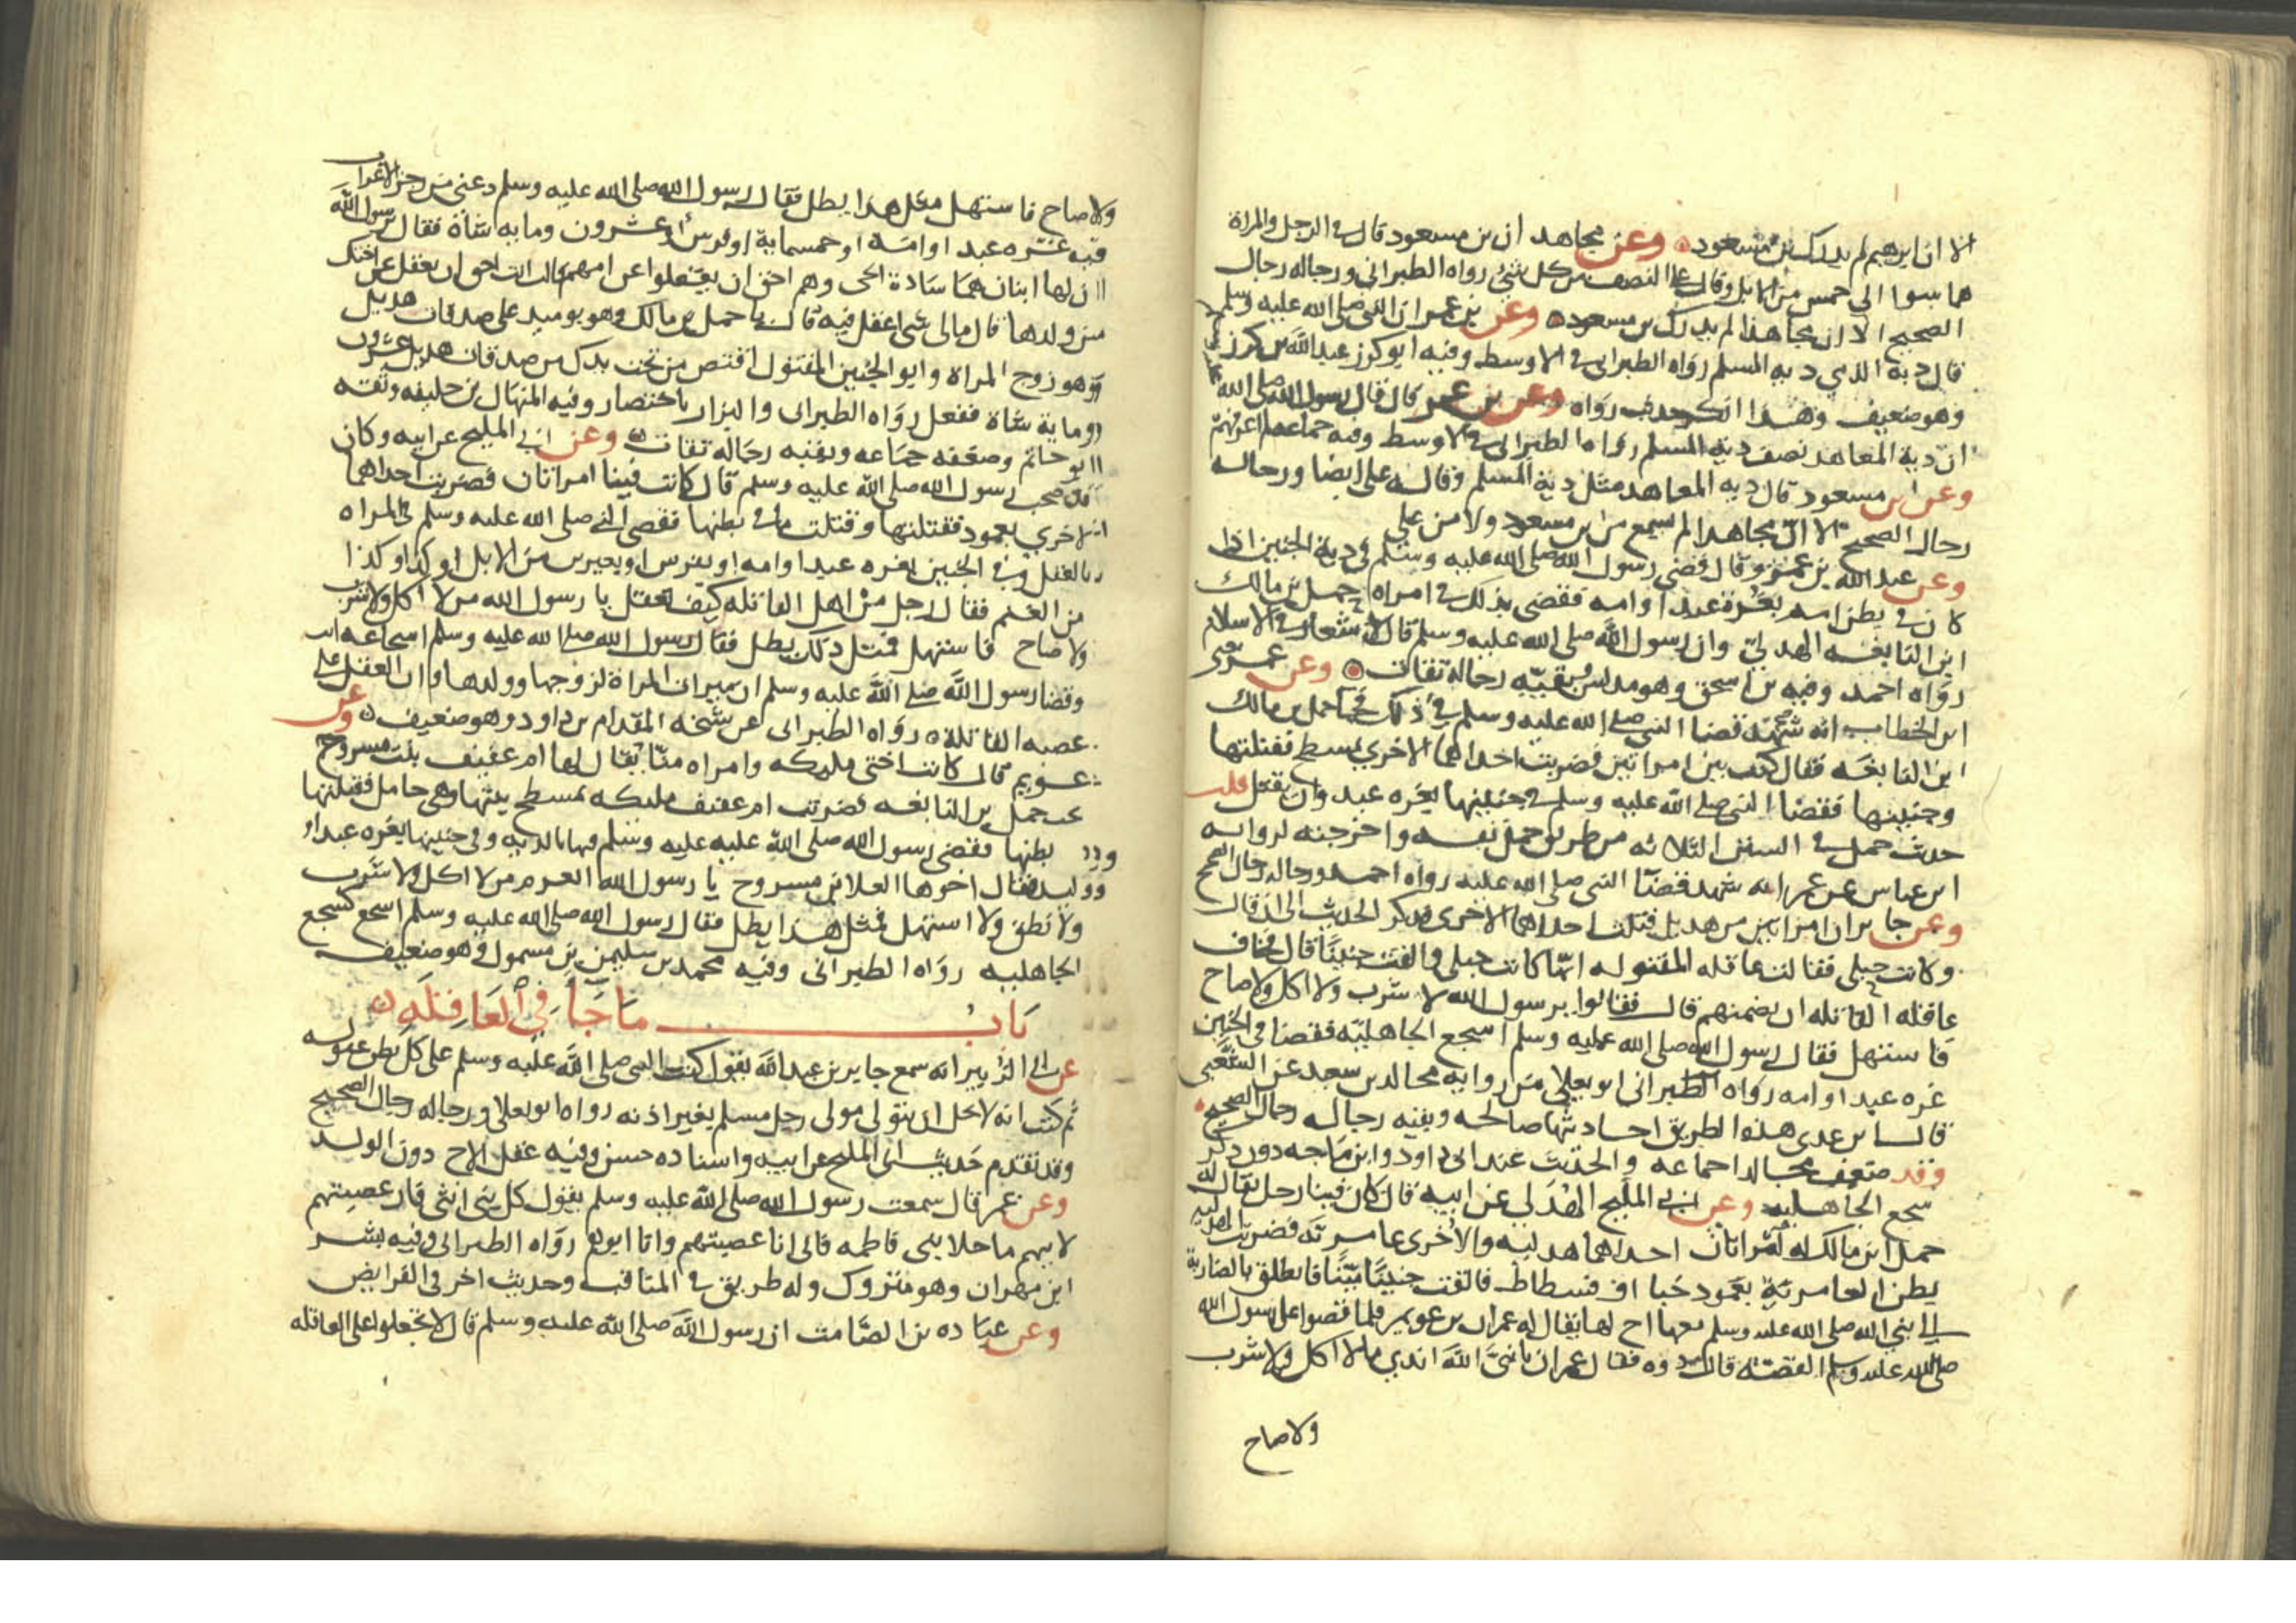 الا ان ابرهيم لم يدرك بن مسعود وعن مجاهد ان بن مسعود قال في الرجل والمراة
هما سوا الى خمس من الابل وقال علي النصف من كل شي رواه الطبراني ورجاله رجال
الصحيح الا ان مجاهدا لم يدرك بن مسعود وعن بن عمر ان النبي صلى الله عليه وسلم
قال دية الذمي دية المسلم رواه الطبراني في الاوسط وفيه ابو كرز عبد الله بن كرز
وهو ضعيف وهذا انكر حديث رواه وعن بن عمر قال قال رسول الله صلى الله
ان دية المعاهد نصف دية المسلم رواه الطبراني في الاوسط وفيه جماعة لم اعرفهم
وعن ابن مسعود قال دية المعاهد مثل دية المسلم وقاله علي ايضا ورجاله
رجال الصحيح الا ان مجاهدا لم يسمع من بن مسعود ولا من علي
وعن عبد الله بن عمرو قال قضى رسول الله صلى الله عليه وسلم في دية الجنين اذا
كان في بطن امه بغرة عبد او امه فقضى بذلك في امراة حمل بن مالك
ابن النابغه الهذلي وان رسول الله صلى الله عليه وسلم قال لا شغار في الاسلام
رواه احمد وفيه بن اسحق وهو مدلس وبقيه رجاله ثقات وعن عمر
ابن الخطاب انه شهد قضا النبي صلى الله عليه وسلم في ذلك فجا حمل بن مالك
ابن النابغه فقال كنت بين امراتين فضربت احداهما الاخرى بمسطح فقتلتها
وجنينها فقضا النبي صلى الله عليه وسلم في جنينها بغره عبد وان تقتل قلت
حديث حمل في السنن الثلاثه من طريق حمل نفسه واخرجته لروايه
ابن عباس عن عمر انه شهد قضا النبي صلى الله عليه رواه احمد ورجاله رجال الصحيح
وعن جابر ان امراتين من هذيل قتلت احداهما الاخرى فذكر الحديث الى ان قال
وكانت حبلى فقالت عاقله المقتوله انها كانت حبلى والقت جنينا قال فخاف
عاقله القاتله ان يضمنهم قال فقالوا يرسول الله لا شرب ولا اكل ولا صاح
فاستهل فقال رسول الله صلى الله عليه وسلم اسجع الجاهليه فقضا في الجنين
غره عبد او امه رواه الطبراني ابو يعلى من روايه مجالد بن سعيد عن الشعبي
قال ابن عدي هذه الطريق احاديثها صالحه وبقيه رجاله رجال الصحيح
وقد ضعف مجالدا جماعه والحديث عند ابي داود وابن ماجه دون ذكر
سجع الجاهليه وعن ابي المليح الهذلي عن ابيه قال كان فينا رجل يقال له
حمل ابن مالك له امراتان احداهما هذليه والاخرى عامريه فضربت الهذليه
بطن العامريه بعمود خبا او فسطاط فالقت جنينا ميتا فانطلق بالضاربة
الى نبي الله صلى الله عليه وسلم معها اخ لها يقال له عمران بن عويمر فلما قصوا على رسول الله
صلى الله عليه وسلم القصه قال دوه فقال عمران يا نبي الله اندي ما لا اكل ولا شرب
ولا صاح
ولا صاح فاستهل مثل هذا يطل فقال رسول الله صلى الله عليه وسلم دعني من رجز الاعراب
فيه غره عبد او امه او خمسمايه او فرس او عشرون ومايه شاة فقال رسول الله
ان لها ابنان هما سادة الحي وهم احق ان يعقلوا عن امهم قال انت احق ان تعقل عن اختك
من ولدها قال مالي شي اعقل فيه قال يا حمل بن مالك وهو يوميذ على صدقات هذيل
وهو زوج المراة وابو الجنين المقتول اقتص من تحت يدك من صدقات هذيل عشرون
ومايه شاة ففعل رواه الطبراني والبزار باختصار وفيه المنهال بن خليفه وثقه
ابو حاتم وضعفه جماعه وبقيه رجاله ثقات وعن ابي المليح عن ابيه وكان
قد صحب رسول الله صلى الله عليه وسلم قال كانت فينا امراتان فضربت احداهما
الاخرى بعمود فقتلتها وقتلت ما في بطنها فقضى النبي صلى الله عليه وسلم في المراه
بالعقل وفي الجنين بغره عبد او امه او بفرس او بعيرين من الابل او كذا او كذا
من الغنم فقال رجل من اهل القاتله كيف نعقل يا رسول الله من لا اكل ولا شرب
ولا صاح فاستهل فمثل ذلك يطل فقال رسول الله صلى الله عليه وسلم اسجاعه
وقضا رسول الله صلى الله عليه وسلم ان ميراث المراة لزوجها وولدها وان العقل على
عصبه القاتله رواه الطبراني عن شيخه المقدام بن داود وهو ضعيف وعن
عويم قال كانت اختي مليكه وامراه منا يقال لها ام عفيف بنت مسروح
تحت حمل بن النابغه فضربت ام عفيف مليكه بمسطح بيتها وهي حامل فقتلتها
بطنها فقضى رسول الله صلى الله عليه عليه وسلم فيها بالديه وفي جنينها بغره عبد او
وليده فقال اخوها العلا بن مسروح يا رسول الله انغرم من لا اكل ولا شرب
ولا نطق ولا استهل فمثل هذا يطل فقال رسول الله صلى الله عليه وسلم اسجع كسجع
الجاهليه رواه الطبراني وفيه محمد بن سليمن بن مسمول وهو ضعيف
باب ما جا في العاقله
عن ابي الزبير انه سمع جابر بن عبد الله يقول كتب النبي صلى الله عليه وسلم على كل بطن عقوله
ثم كتب انه لا يحل ان يتولى مولى رجل مسلم بغير اذنه رواه ابو يعلى ورجاله رجال الصحيح
وقد تقدم حديث ابي المليح عن ابيه واسناده حسن وفيه عقل الاخ دون الولد
وعن عمر قال سمعت رسول الله صلى الله عليه وسلم يقول كل بني انثى فان عصبتهم
لابيهم ما خلا بني فاطمه فاني انا عصبتهم وانا ابوهم رواه الطبراني وفيه بشر
ابن مهران وهو متروك وله طريق في المناقب وحديث اخر في الفرايض
وعن عباده بن الصامت ان رسول الله صلى الله عليه وسلم قال لا تجعلوا على العاقله